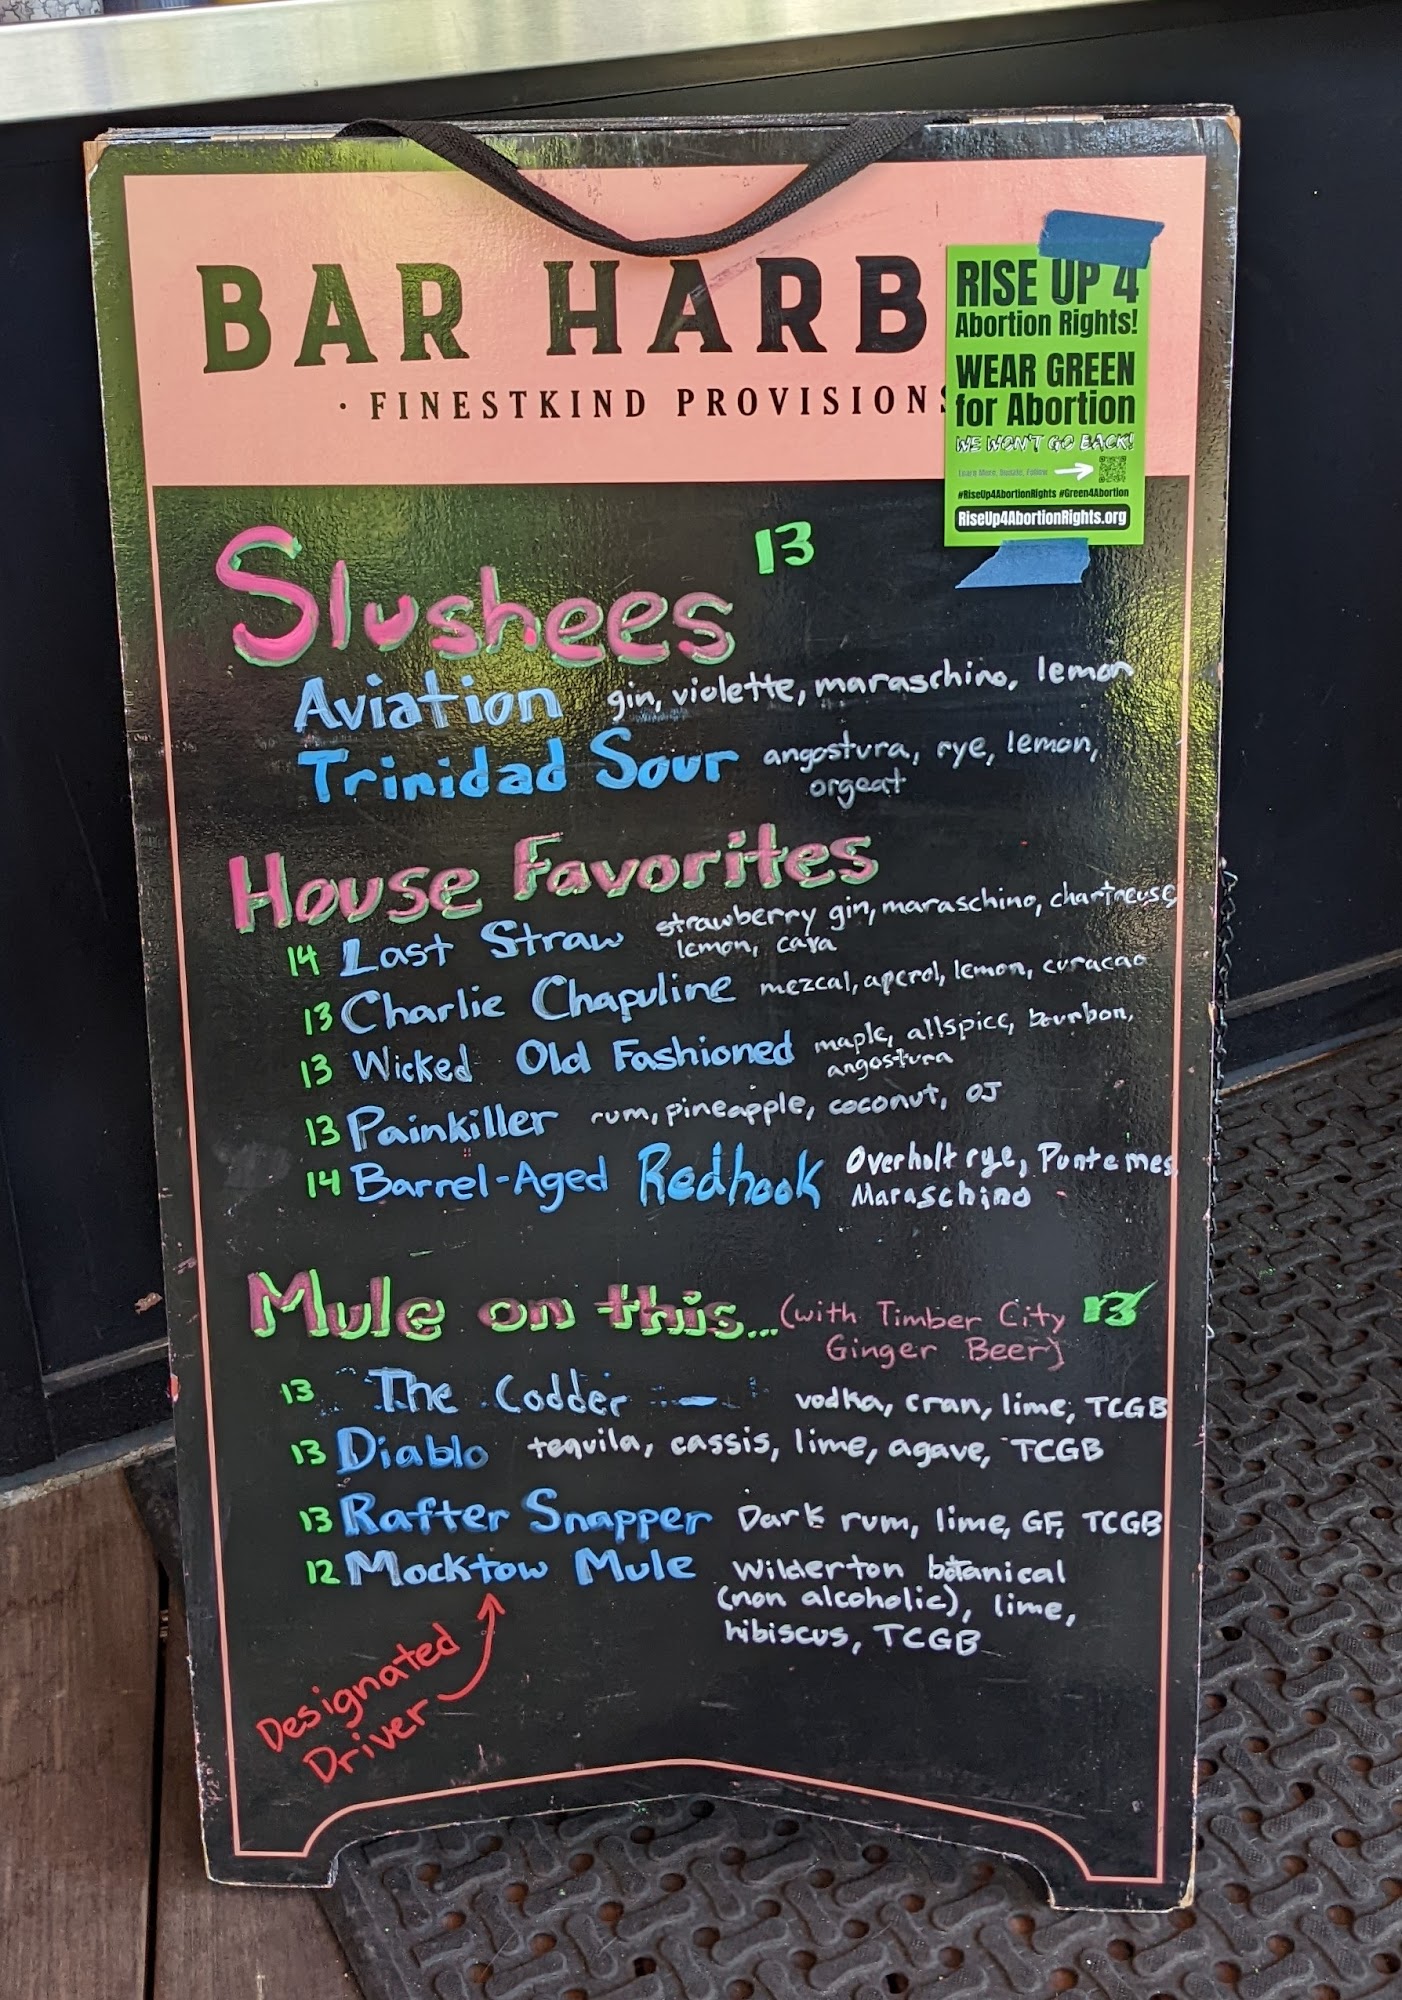 BAR HARB
· FINESTKIND PROVISIONS
RISE UP 4
Abortion Rights!
WEAR GREEN
for Abortion
WE WON'T GO BACK!
Learn More, Donate, Follow
#RiseUp4AbortionRights #Green4Abortion
RiseUp4AbortionRights.org
Slushees 13
Aviation gin, violette, maraschino, lemon
Trinidad Sour angostura, rye, lemon,
orgeat
House Favorites
14 Last Straw strawberry gin, maraschino, chartreuse,
lemon, cava
13 Charlie Chapuline mezcal, aperol, lemon, curacao
13 Wicked Old Fashioned maple, allspice, bourbon,
angostura
13 Painkiller rum, pineapple, coconut, OJ
14 Barrel-Aged Redhook Overholt rye, Puntemes
Maraschino
Mule on this... (with Timber City 13
Ginger Beer)
13 The Codder - vodka, cran, lime, TCGB
13 Diablo tequila, cassis, lime, agave, TCGB
13 Rafter Snapper Dark rum, lime, GF, TCGB
12 Mocktow Mule Wilderton botanical
(non alcoholic), lime,
hibiscus, TCGB
Designated
Driver